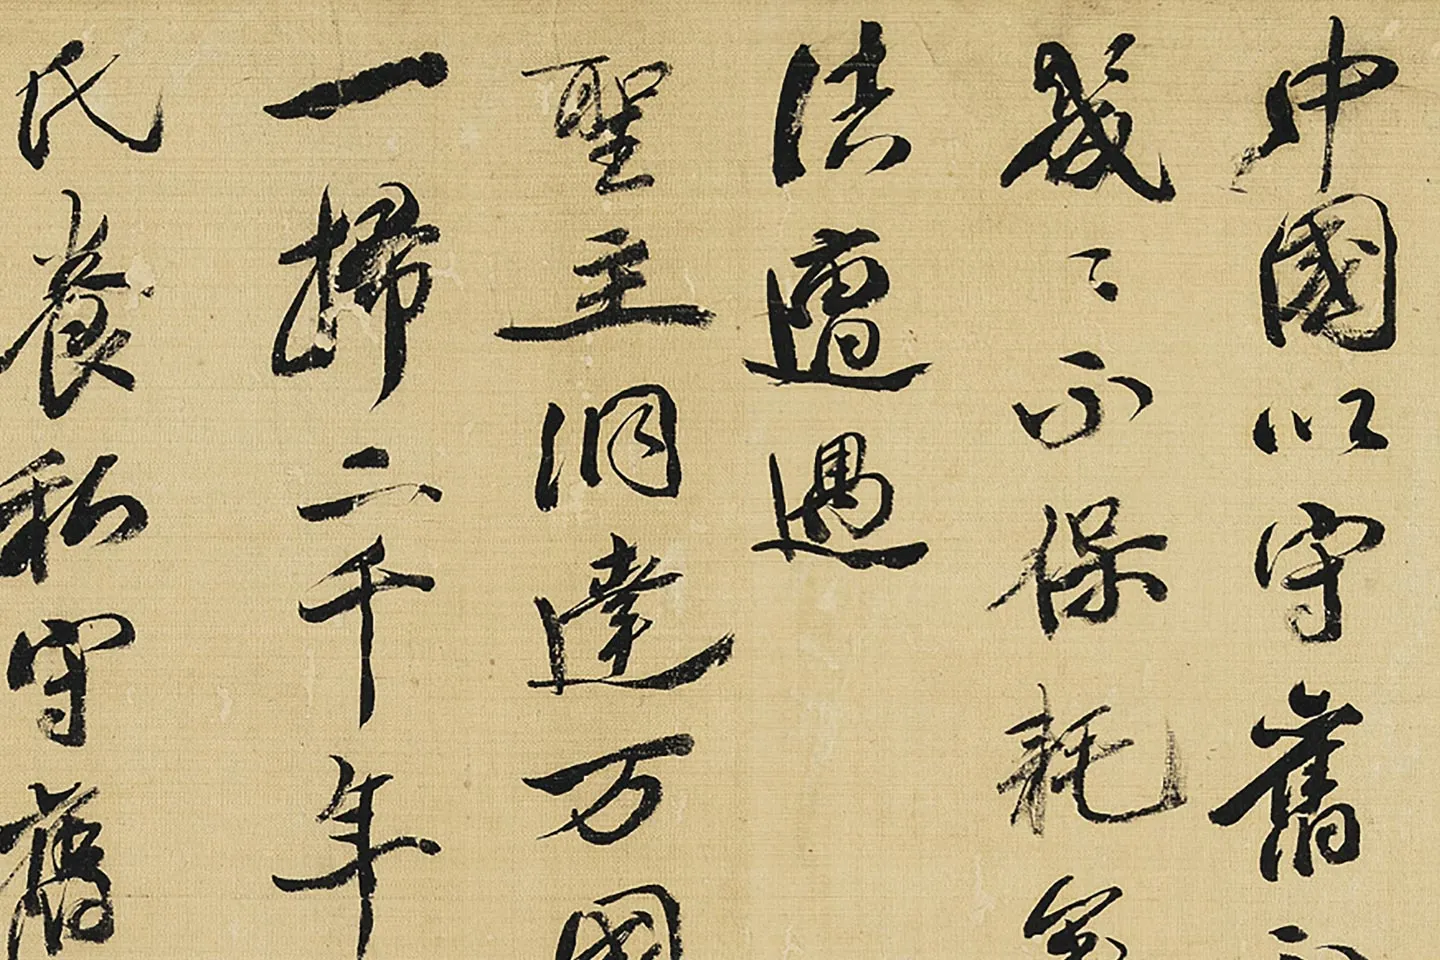 中國以守舊
幾〻不保耗
法遭遇
聖主洞達万國
一掃二千年
氏養私守舊